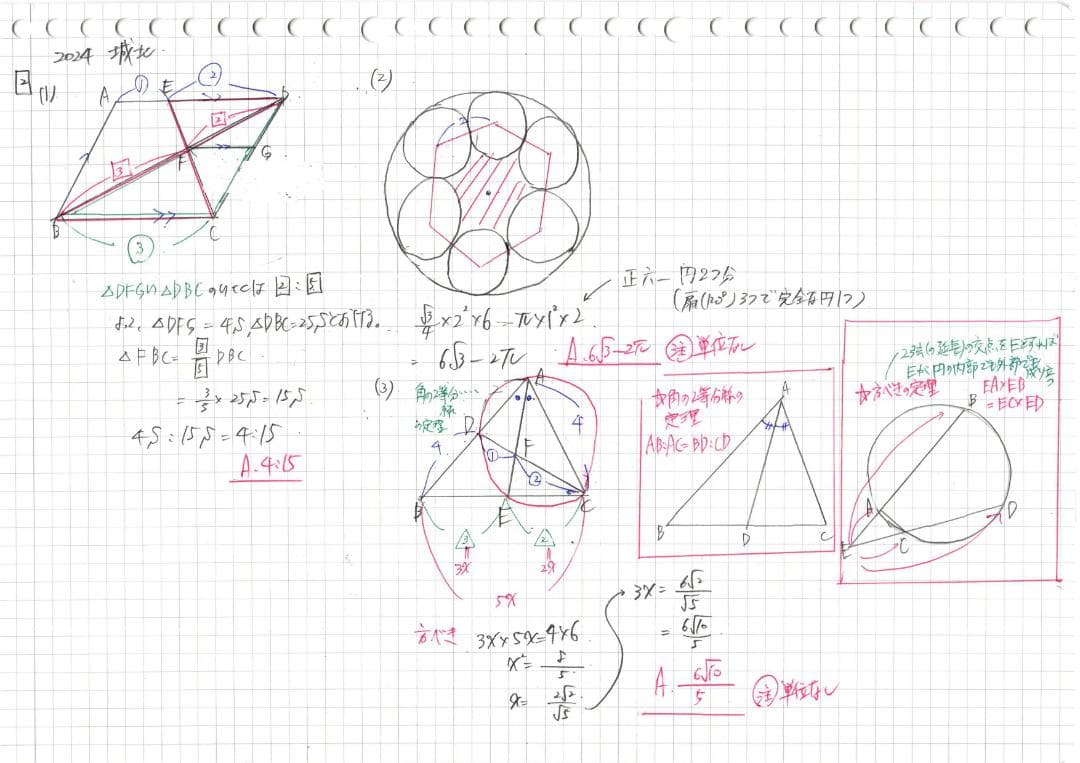 2024 城北
2
(1)
A
①
E
②
D
2
F
G
3
B
③
C
△DFG∽△DBCのひとは 2:5
よって、△DFG=4S,△DBC=25Sとおける。
△FBC=3/5 DBC.
=3/5×25S=15S.
4S:15S=4:15
A.4:15
(2)
2
正六−円2つ分
(扇(120°)3つで完全な円1つ)
√3/4×2²×6−π×1²×2.
=6√3−2π
A.6√3−2π
注 単位なし
(3)
角の2等分線
の定理
A
D
4
4
F
①
②
B
E
C
3
2
3x
2x
5x
方べき
3x×5x=4×6.
x²=8/5.
x=2√2/√5
3x=6√2/√5
=6√10/5
A.6√10/5
注 単位なし
角の2等分線の
定理
AB:AC=BD:CD
A
B
D
C
2弦(の延長)の交点をEとすれば
Eが円の内部でも外部でも成り立つ
方べきの定理
EA×EB
=EC×ED
B
A
D
E
C